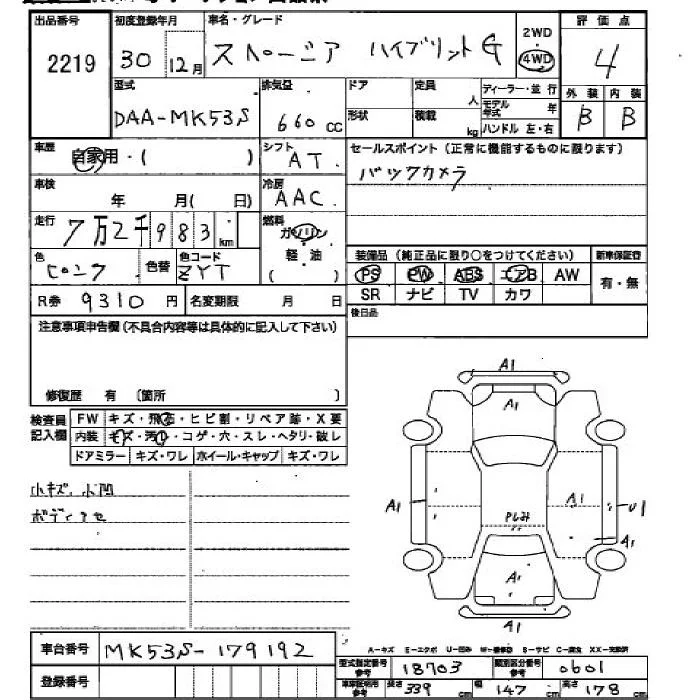 出品番号 初度登録年月 車名・グレード 2WD 評価点
2219 30 12月 スペーシア ハイブリットG 4WD 4
型式 排気量 ドア 定員 人 ディーラー・並行 外装 内装
DAA-MK53S 660cc 形状 積載 kg モデル年式 年 B B
ハンドル 左・右
車歴 自家用・( ) シフト AT セールスポイント (正常に機能するものに限ります)
バックカメラ
車検 年 月(日) 冷房 AAC
走行 7万2千983km 燃料 ガソリン
軽油
( )
色 ピンク 色替 色コード ZYT 装備品 (純正品に限り○をつけてください) 新車保証書
PS PW ABS エアB AW 有・無
R券 9310円 名変期限 月 日 SR ナビ TV カワ
注意事項申告欄(不具合内容等は具体的に記入して下さい) 後日品
修復歴 有 〔箇所 〕
検査員記入欄 FW キズ・飛石・ヒビ割・リペア跡・X要
内装 キズ・汚レ・コゲ・穴・スレ・ヘタリ・破レ
ドアミラー キズ・ワレ ホイール・キャップ キズ・ワレ
小キズ、小凹
ボディアセ
A1
A1
A1 A1 U1
PレるみA1
A1
A1
車台番号 MK53S-179192
A-キズ E-エクボ U-凹み W-補修跡 S-サビ C-腐食 XX-交換済
登録番号 型式指定番号 参考 18703 類別区分番号 参考 0601
車車証明用 参考 長さ 339cm 幅 147cm 高さ 178cm